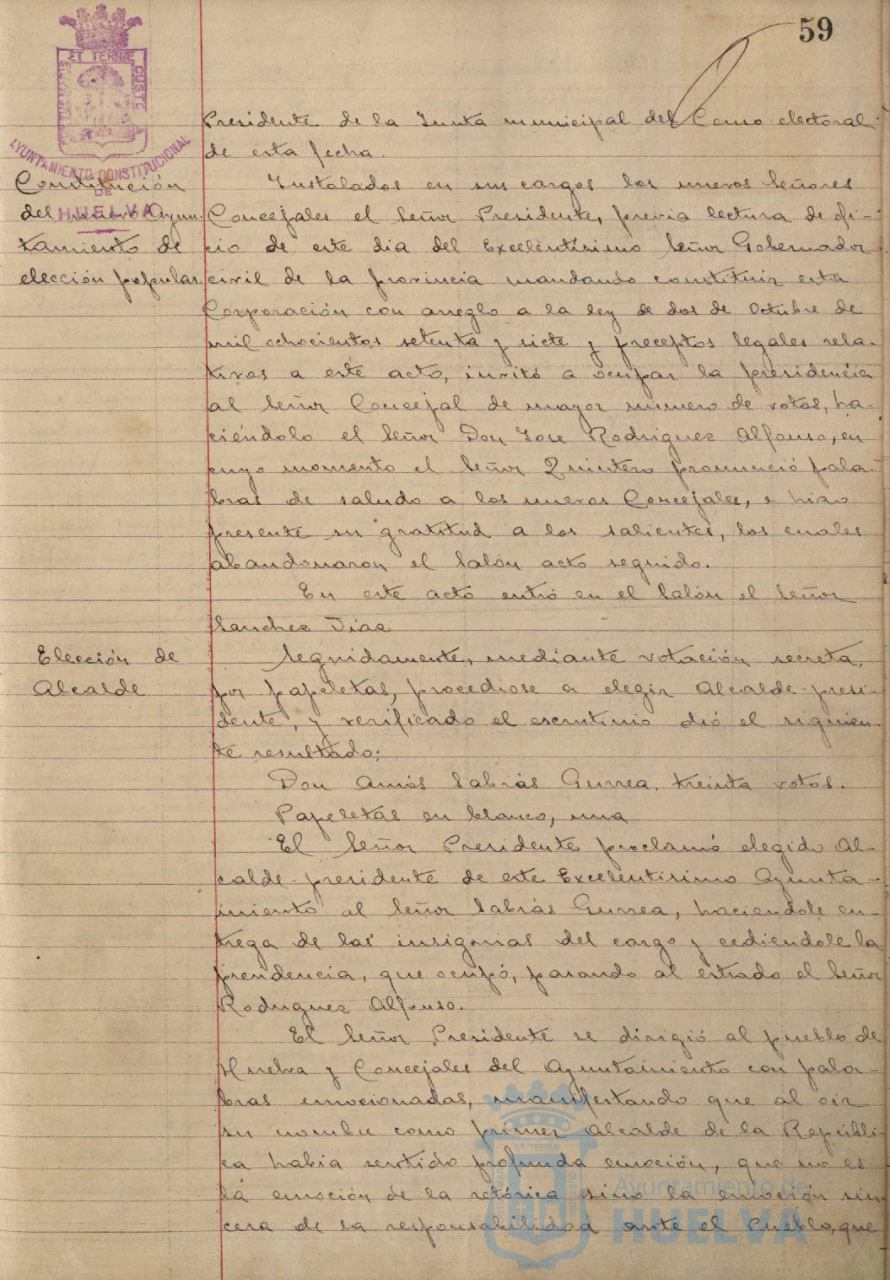 59
ET TERRÆ
AYUNTAMIENTO CONSTITUCIONAL
DE
HUELVA
Presidente de la Junta municipal del Censo electoral
de esta fecha.
Constitución
del nuevo Ayun-
tamiento de
elección popular
Instalados en sus cargos los nuevos Señores
Concejales el Señor Presidente, previa lectura de ofi-
cio de este dia del Excelentisimo Señor Gobernador
civil de la provincia mandando constituir esta
Corporación con arreglo a la ley de dos de Octubre de
mil ochocientos setenta y siete y preceptos legales rela-
tivos a este acto, invitó a ocupar la presidencia
al Señor Concejal de mayor numero de votos, ha-
ciéndolo el Señor Don Jose Rodriguez Alfonso, en
cuyo momento el Señor Quintero pronunció pala-
bras de saludo a los nuevos Concejales, e hizo
presente su gratitud a los salientes, los cuales
abandonaron el Salón acto seguido.
En este acto entró en el Salón el Señor
Sanchez Diaz
Elección de
Alcalde
Seguidamente, mediante votación secreta,
por papeletas, procediose a elegir Alcalde-presi-
dente, y verificado el escrutinio dió el siguien-
te resultado;
Don Amós Sabrás Gurrea, treinta votos.
Papeletas en blanco, una
El Señor Presidente proclamó elegido Al-
calde-presidente de este Excelentisimo Ayunta-
miento al Señor Sabrás Gurrea, haciendole en-
trega de las insignias del cargo y cediendole la
presidencia, que ocupó, pasando al estrado el Señor
Rodriguez Alfonso.
El Señor Presidente se dirigió al pueblo de
Huelva y Concejales del Ayuntamiento con pala-
bras emocionadas, manifestando que al oir
su nombre como primer Alcalde de la Repúbli-
ca habia sentido profunda emoción, que no es
la emoción de la retórica sino la emoción sin-
cera de la responsabilidad ante el Pueblo, que
Ayuntamiento de
HUELVA